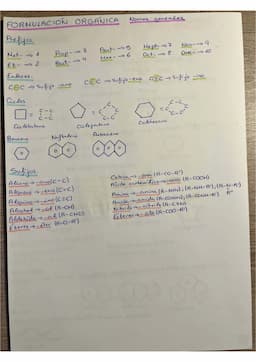 FORMULACIÓN ORGÁNICA Normas generales
Prefijos
Met- → 1 Prop- → 3 Pent- → 5 Hept- → 7 Non- → 9
Et- → 2 But- → 4 Hex- → 6 Oct- → 8 Dec- → 10
Enlaces
C-C → Sufijo -ano C=C → Sufijo -eno C≡C → Sufijo -ino
Ciclos
Ciclobutano Ciclopentano Ciclohexano
Benceno Naftaleno Antraceno
Sufijos
Alcano → -ano (C-C)
Alqueno → -eno (C=C)
Alquino → -ino (C≡C)
Alcohol → -ol (R-OH)
Aldehído → -al (R-CHO)
Éteres → -éter (R-O-R')
Cetona → -ona (R-CO-R')
Ácido carboxílico → (R-COOH)
Amina → -amina (R-NH₂), (R-NH-R')
Amida → -amida
Nitrilo → -nitrilo
Ésteres → -ato (R-COO-R')